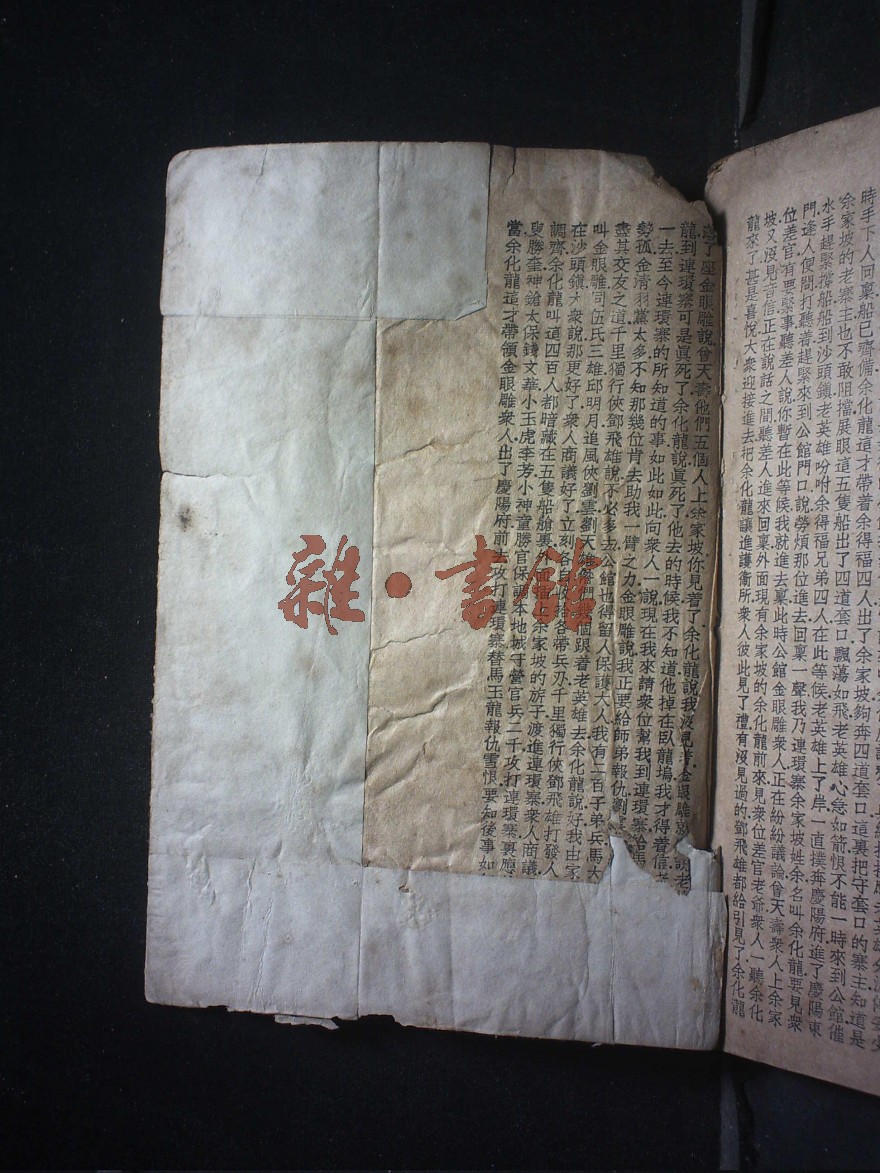 時手下人回稟船已齊備余化龍這才帶着余得福四人出了余家坡夠奔四道套口這裏把守套口的寨主知道是
余家坡的老寨主也不敢阻擋展眼這五隻船出了四道套口飄蕩如飛老英雄心急如箭恨不能一時來到公館催
水手趕緊撐船船到沙頭鎮老英雄吩咐余得福兄弟四人在此等候老英雄上了岸一直撲奔慶陽府進了慶陽東
門逢人便問打聽着趕緊來到公館門口說勞煩那位進去回稟一聲我乃連環寨余家坡姓余名叫余化龍要見衆
位差官有要緊事聽差人說你暫在此等候我就進去稟此時公館金眼雕衆人正在紛紛議論曾天壽衆人上余家
坡又沒見音信正在說話之間聽差人進來回稟外面現有余家坡的余化龍前來見衆位差官老爺衆人一聽余化
龍來了甚是喜悅大衆迎接進去把余化龍讓進護衞所衆人彼此見了禮有沒見過的鄧飛雄都給引見了余化龍
了座金眼雕說曾天壽他們五個人上余家坡你見着了余化龍說我沒見着金眼雕說老
龍到連環寨可是眞死了余化龍說眞死了他去的時候我不知道他掉在臥龍塢我才得着信老
一去至今連環寨的所知道的事如此如此向衆人一說現在我來請衆位幫我到連環寨給馬
勢孤金清羽黨太多不知那幾位肯去助我一臂之力金眼雕說我正要給師弟報仇劉
盡其交友之道千里獨行俠鄧飛雄說不必多去公館也得留人保護大人我有二百子弟兵馬大
叫金眼雕同伍氏三雄邱明月追風俠劉雲劉天雄你們幾個跟着老英雄去余化龍說好我由家
在沙頭鎮大衆說那更好了衆人商議好了立刻各自收拾各帶兵刃千里獨行俠鄧飛雄打發人
調齊余化龍叫這四百人都暗藏在五隻船艙裏外面插上余家坡的旂子渡進連環寨衆人商議
叟勝奎神鎗太保錢文華小玉虎李芳小神童勝官保調本地城守營官兵二千攻打連環寨裏應
當余化龍這才帶領金眼雕衆人出了慶陽府前去攻打連環寨替馬玉龍報仇雪恨要知後事如
雜·書館